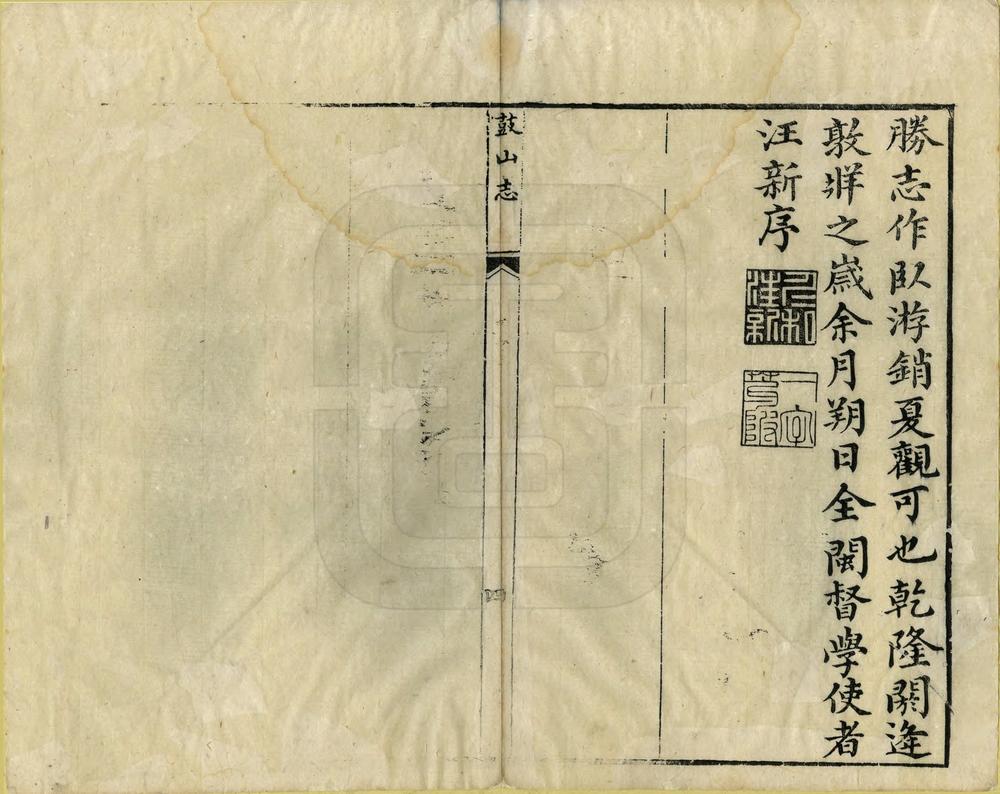 勝志作臥游銷夏觀可也乾隆閼逢
敦牂之歲余月朔日全閩督學使者
汪新序
汪新
一字
鼓山志
四